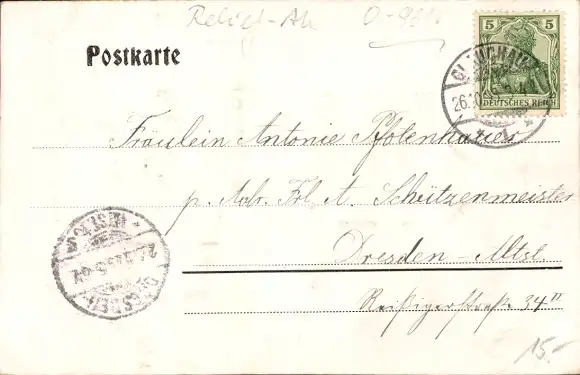 Relief-Ak
Postkarte
5 5
DEUTSCHES REICH
GLAUCHAU
26.10.
Fräulein Antonie Pfotenhauer
p. Adr. Frl. A. Schützenmeister
Dresden-Altst.
Reißigerstraße 34 II
DRESDEN
15.-